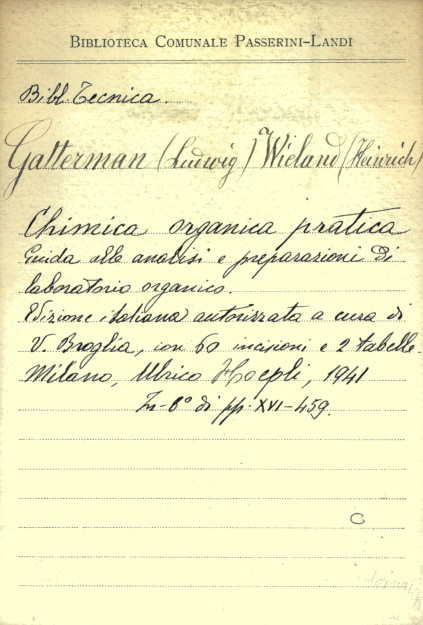 BIBLIOTECA COMUNALE PASSERINI-LANDI
Bibl. Tecnica.
Gatterman (Ludwig) Wieland (Heinrich)
Chimica organica pratica
Guida alle analisi e preparazioni di
laboratorio organico.
Edizione italiana autorizzata a cura di
V. Broglia, con 60 incisioni e 2 tabelle.
Milano, Ulrico Hoepli, 1941
In-8° di pp. XVI-459.
C